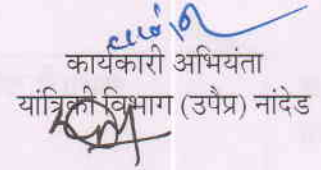 कार्यकारी अभियंता
यांत्रिकी विभाग (उपैप्र) नांदेड